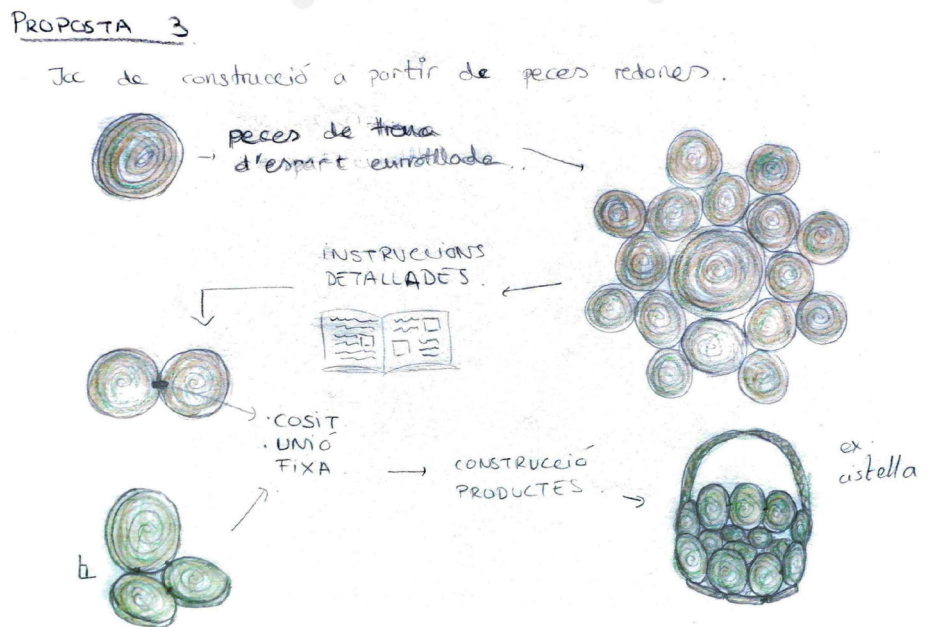 PROPOSTA 3
Joc de construcció a partir de peces redones.
peces de trena
d'espart enrotllada.
INSTRUCCIONS
DETALLADES.
· COSIT
· UNIÓ
FIXA
CONSTRUCCIÓ
PRODUCTES.
ex.
cistella